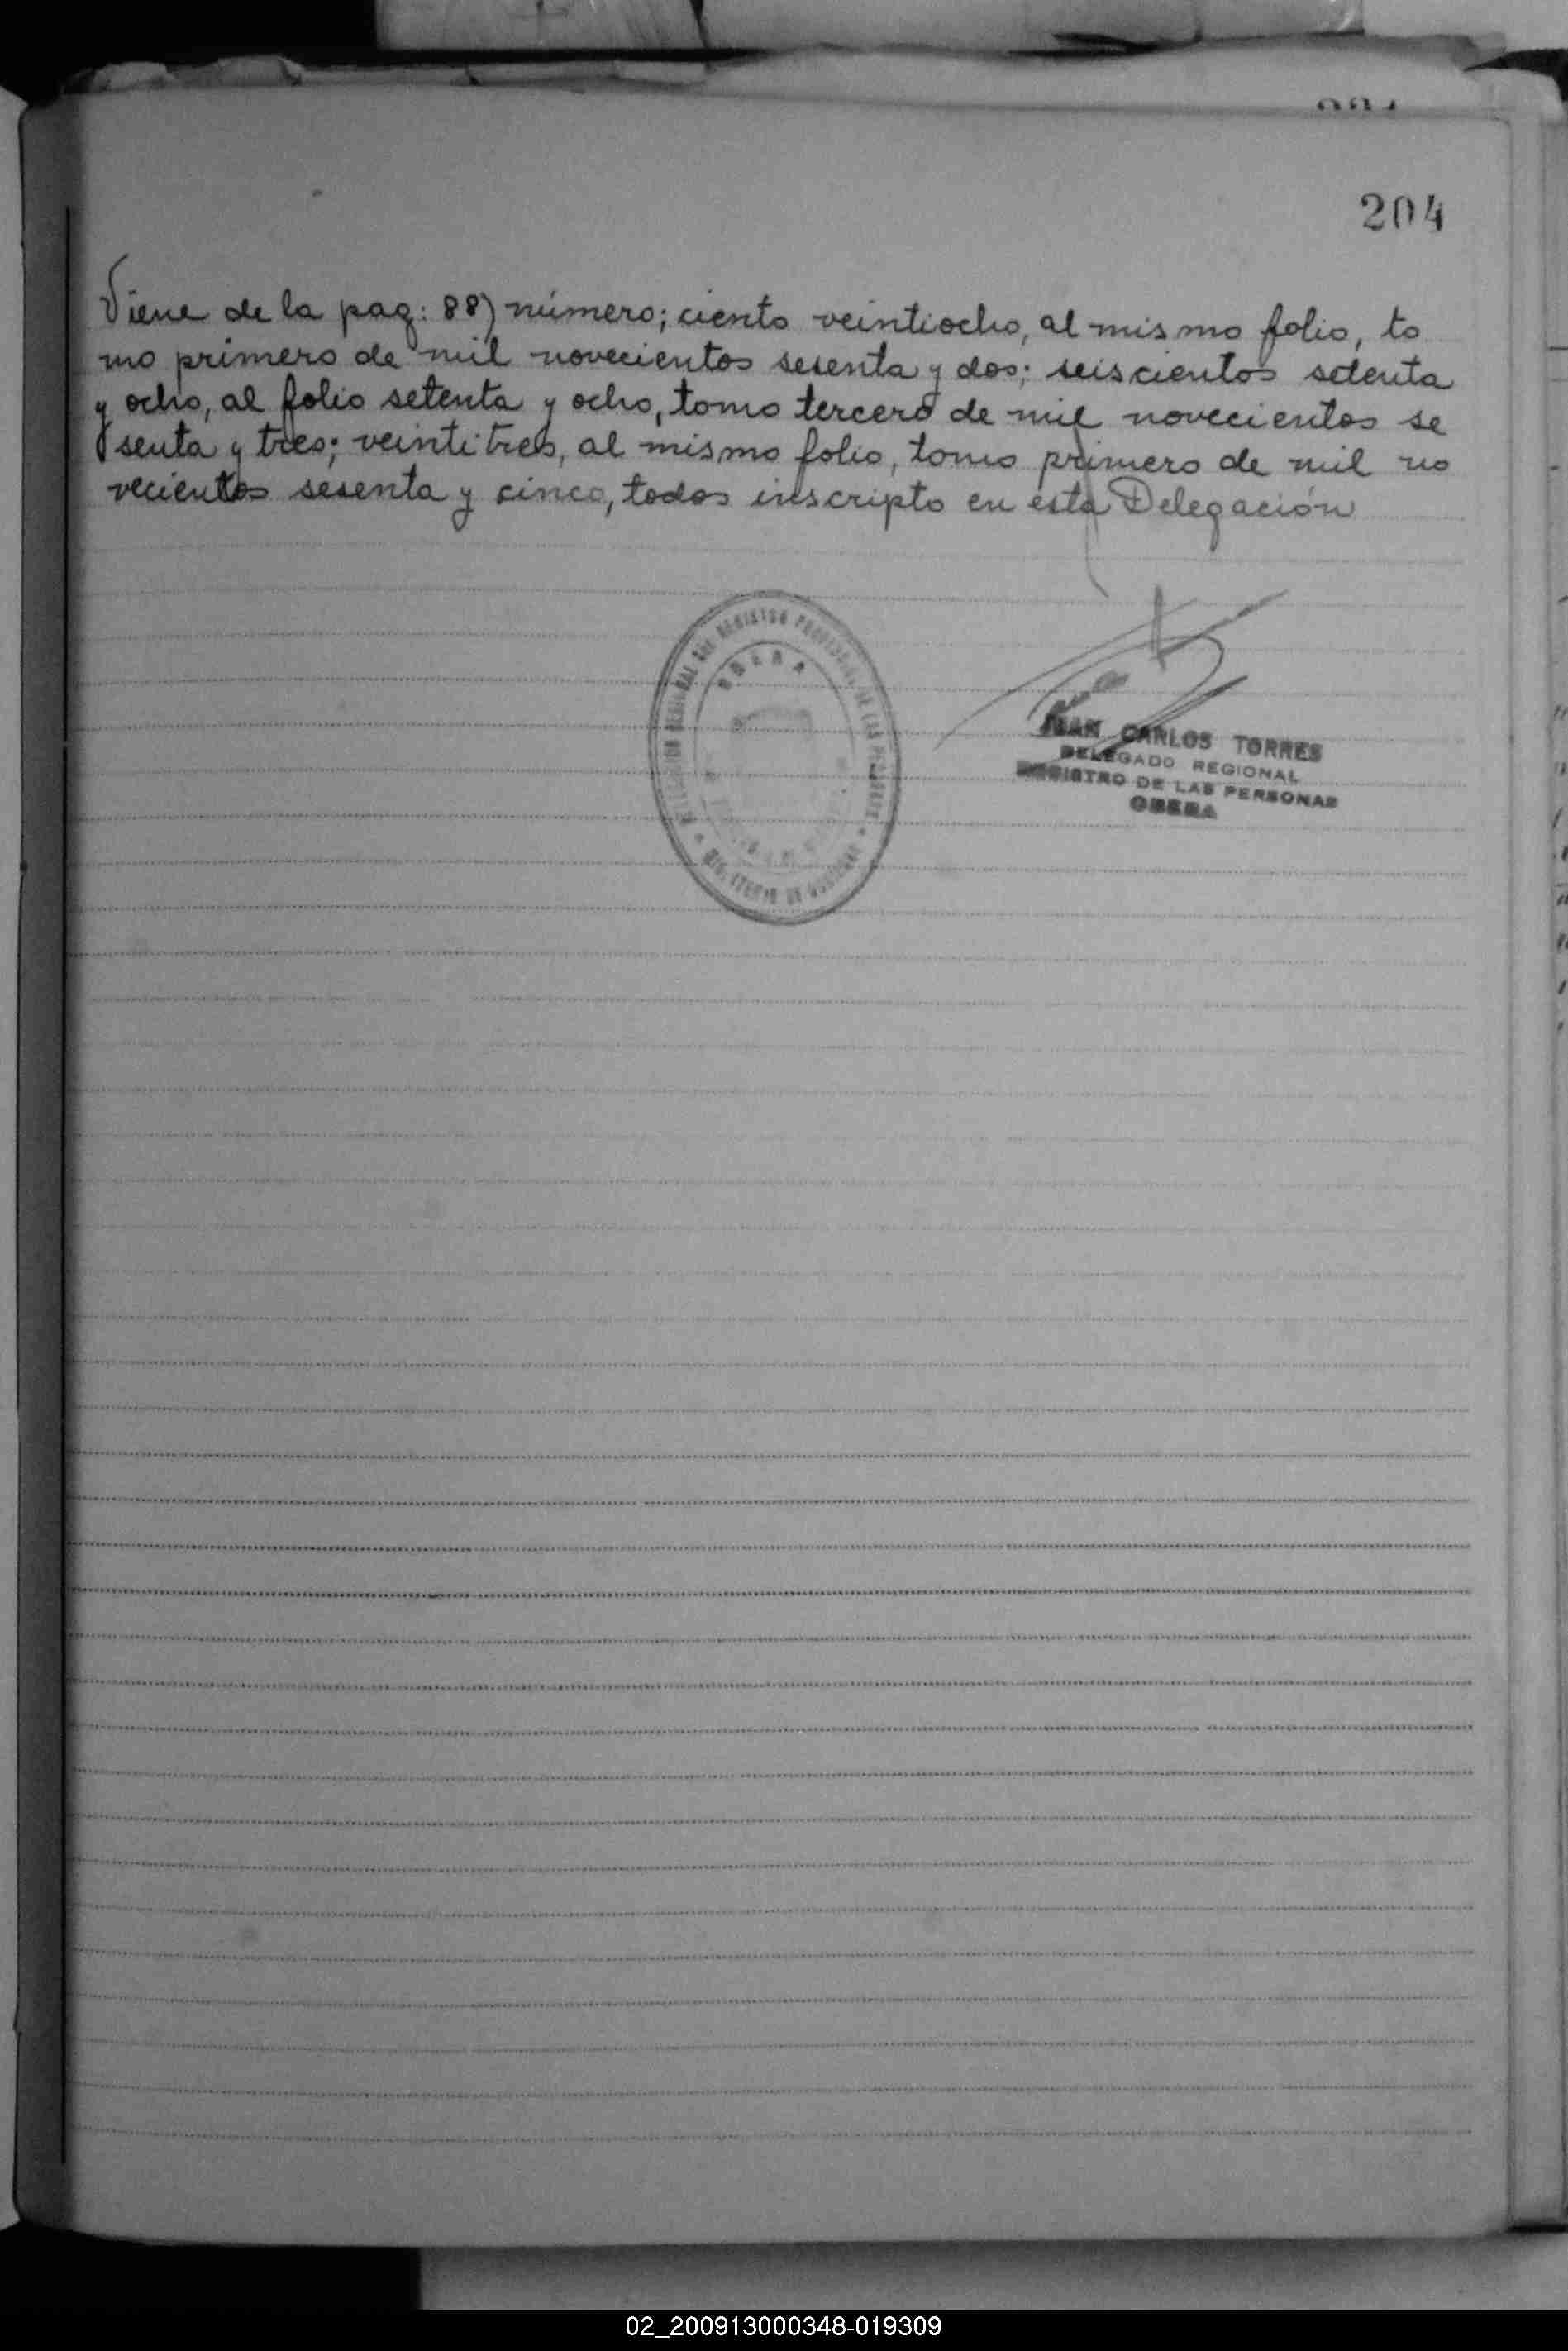 204
Viene de la pag: 88) número; ciento veintiocho, al mismo folio, to
mo primero de mil novecientos sesenta y dos; seiscientos setenta
y ocho, al folio setenta y ocho, tomo tercero de mil novecientos se
senta y tres; veintitres, al mismo folio, tomo primero de mil no
vecientos sesenta y cinco, todos inscripto en esta Delegación
OBERA
JUAN CARLOS TORRES
DELEGADO REGIONAL
REGISTRO DE LAS PERSONAS
OBERA
02_200913000348-019309